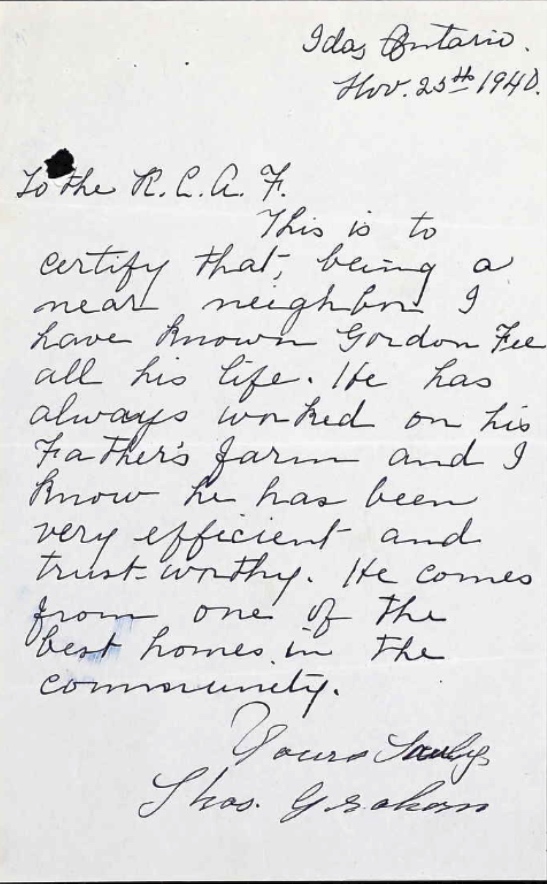 Ida, Ontario.
Nov. 25th 1940.
To the R. C. A. F.
This is to
certify that, being a
near neighbor I
have known Gordon Fee
all his life. He has
always worked on his
Father's farm and I
know he has been
very efficient and
trust-worthy. He comes
from one of the
best homes in the
community.
Yours Truly
Thos. Graham